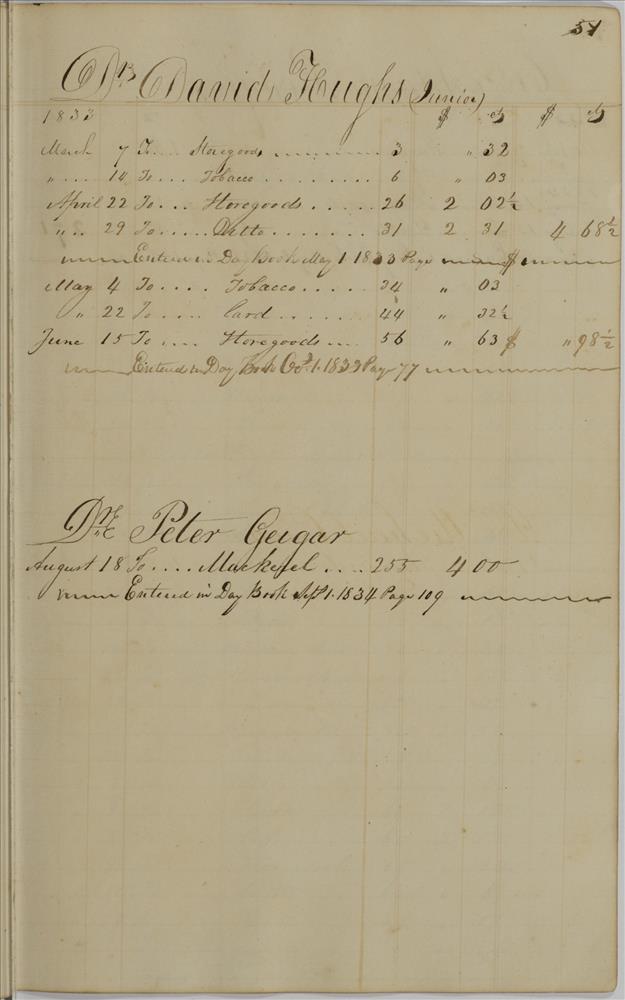 51
Dr. David Hughs (Junior)
1833 $ cts $ cts
March 7 To .... Storegoods .......... 3 " 32
" ... 14 To ... Tobacco ......... 6 " 03
April 22 To ... Storegoods ..... 26 2 02½
" .. 29 To ..... Ditto ....... 31 2 31 4 68½
Entered in Day Book May 1 1833 Page $
May 4 To .... Tobacco .... 34 " 03
" 22 To .... Card ..... 44 " 32½
June 15 To .... Storegoods ... 56 " 63 $ " 98½
Entered in Day Book Oct 1. 1833 Page 77
Dr. Peter Geigar
August 18 To .... Mackerel .... 255 4 00
Entered in Day Book Sept 1. 1834 Page 109